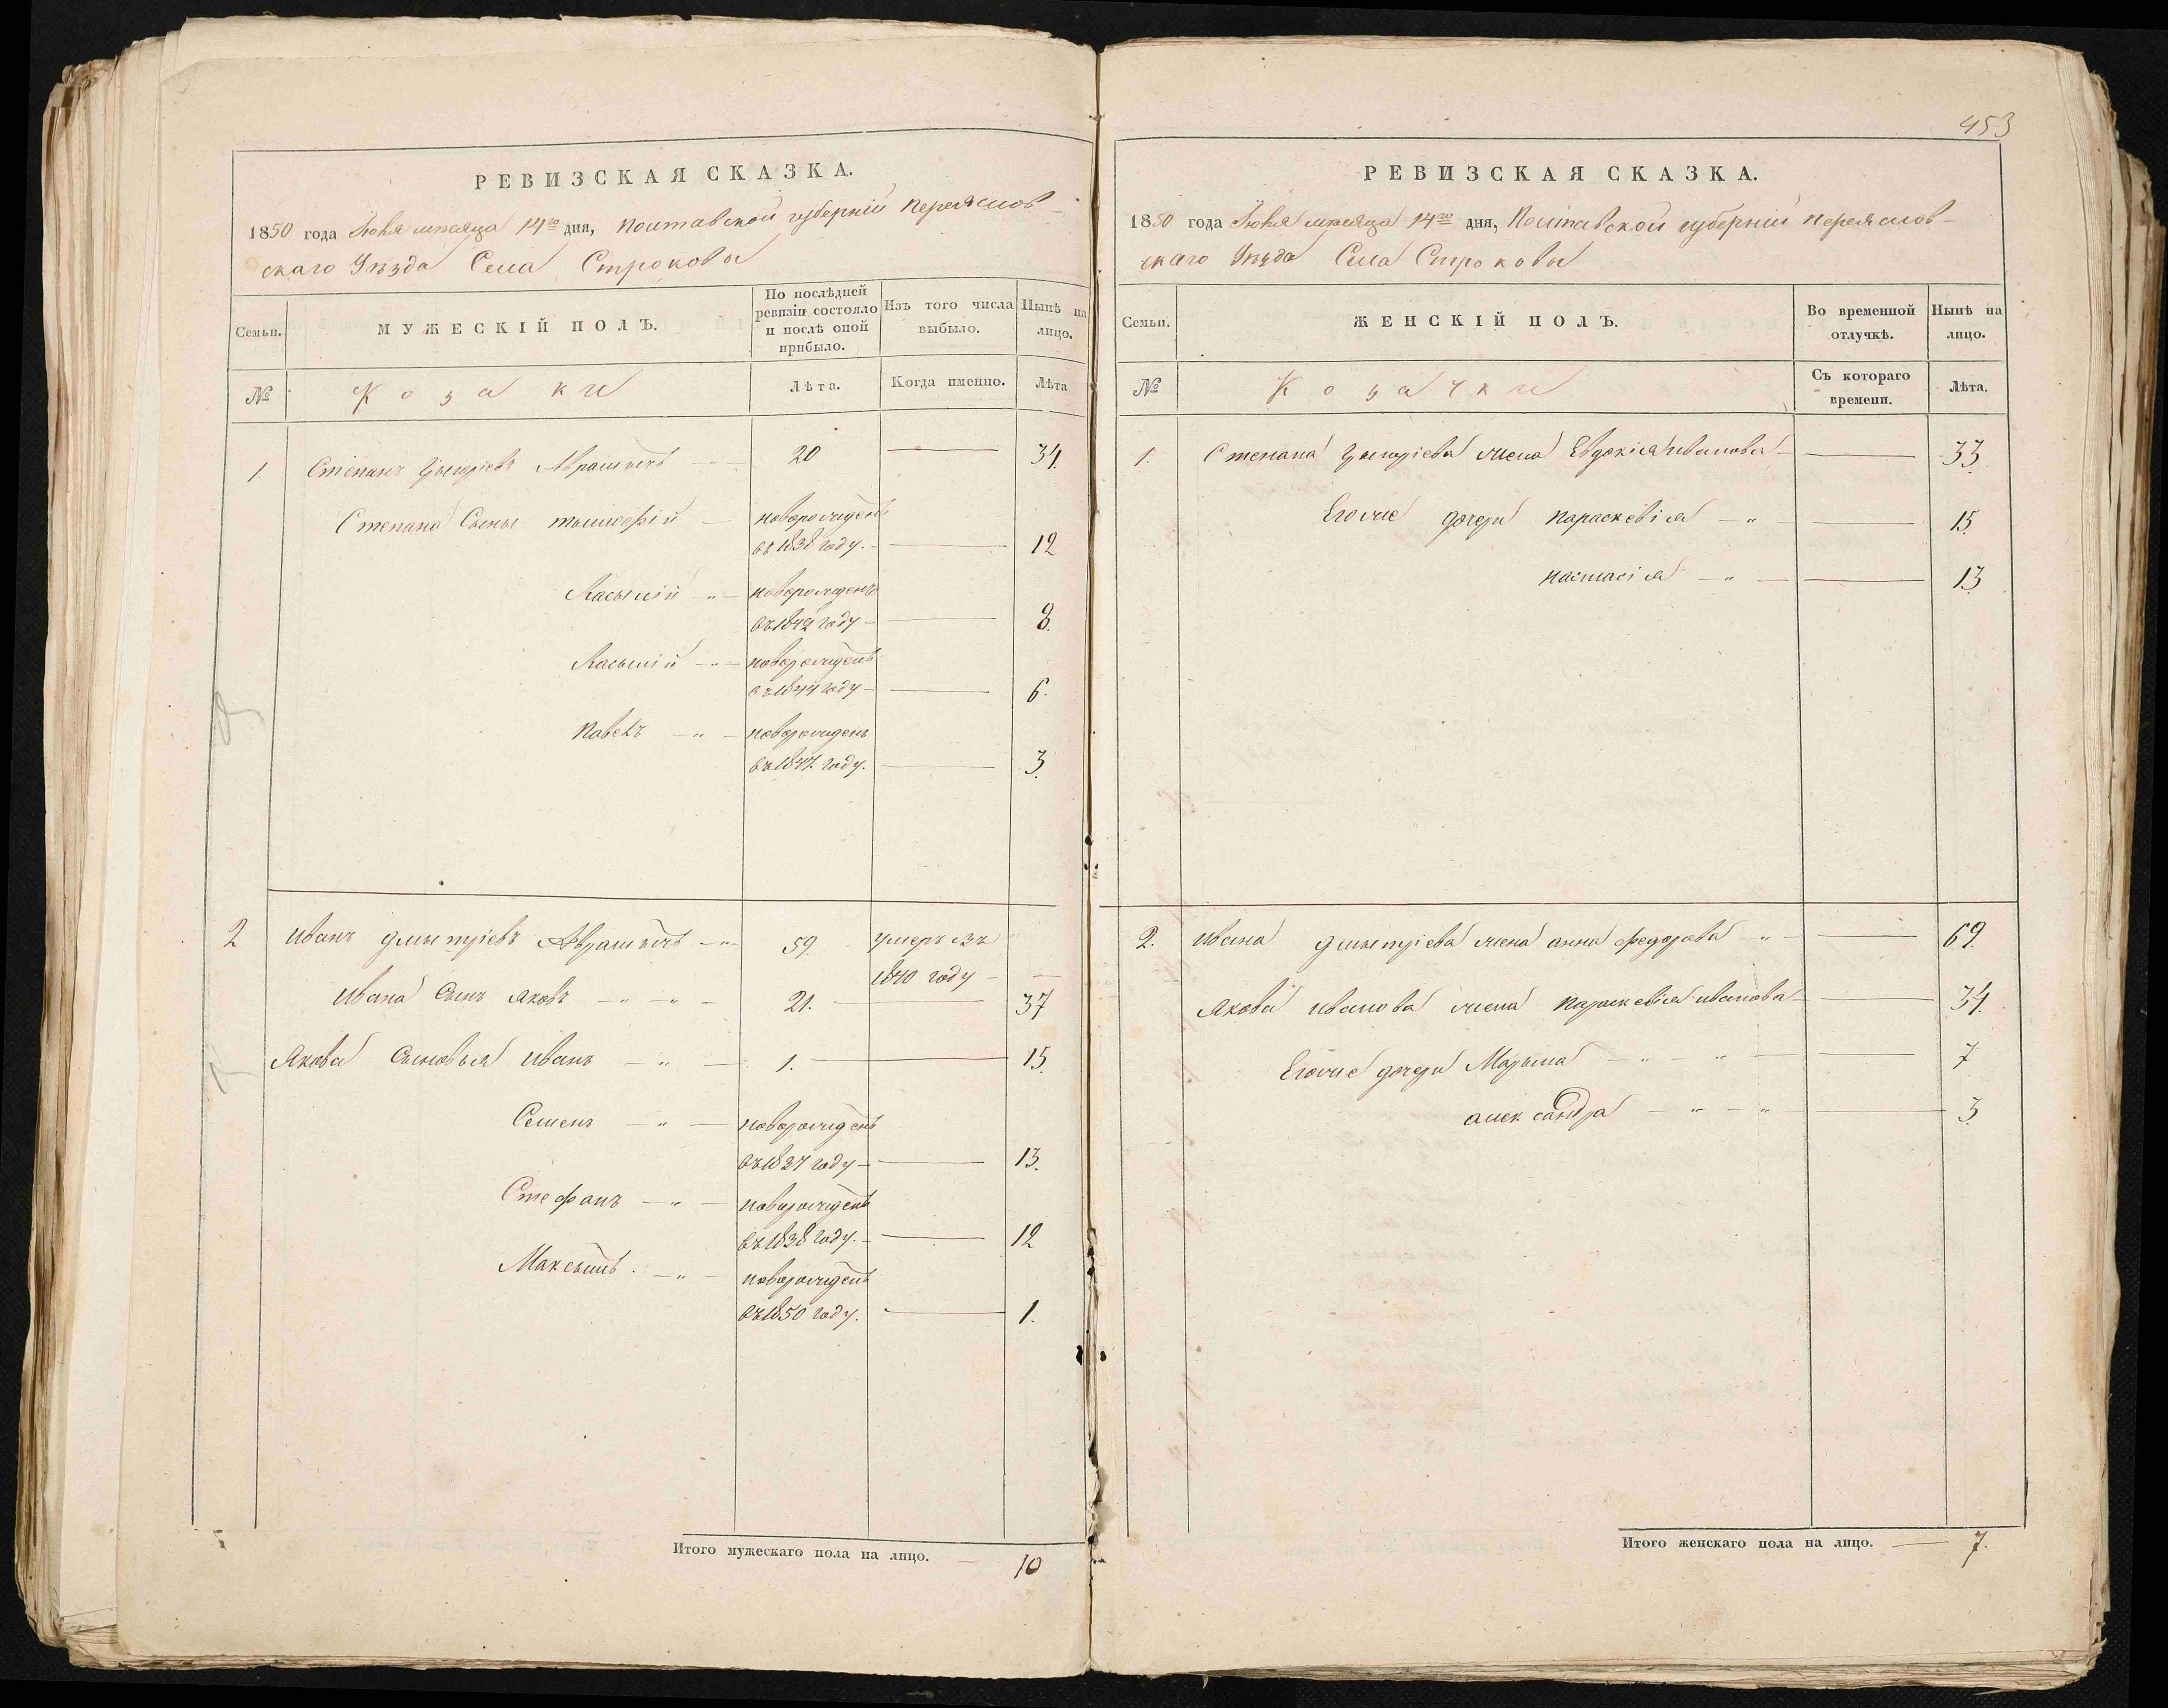 453
РЕВИЗСКАЯ СКАЗКА.
1850 года Іюня мѣсяца 14го дня, Полтавской губерніи переяслов-
скаго Уѣзда Села Строковы
Семьи.
МУЖЕСКІЙ ПОЛЪ.
По послѣдней ревизіи состояло и послѣ оной прибыло.
Изъ того числа выбыло.
Нынѣ на лицо.
№
Козаки
Лѣта.
Когда именно.
Лѣта
1. Степанъ Григоріевъ 20 — 34.
Степана Сыны тымофій — новорожденъ
въ 1838 году. — 12
Васылій — новорожденъ
въ 1842 году — 8.
Васылій — новорожденъ
въ 1844 году — 6.
Павелъ — новорожденъ
въ 1847 году. — 3.
2 Иванъ дмытріевъ 59. умеръ въ
1840 году —
Ивана Сынъ Яковъ — 21. — 37
Якова Сыновья Иванъ — 1. — 15.
Семенъ — новорожденъ
въ 1837 году — 13.
Стефанъ — новорожденъ
въ 1838 году. — 12
Максымъ. — новорожденъ
въ 1850 году. — 1.
Итого мужескаго пола на лицо. — 10
РЕВИЗСКАЯ СКАЗКА.
1850 года Іюня мѣсяца 14го дня, Полтавской губерніи переяслов-
скаго Уѣзда Села Строковы
Семьи.
ЖЕНСКІЙ ПОЛЪ.
Во временной отлучкѣ.
Нынѣ на лицо.
№
Козачки
Съ котораго времени.
Лѣта.
1. Степана Григоріева жена Евдокія иванова — 33.
Егоже дочери параскевія — 15.
настасія — 13.
2. Ивана дмытріева жена анна федорова — 69.
Якова иванова жена параскевія иванова — 34.
Егоже дочери Марына — 7
александра — 3.
Итого женскаго пола на лицо. — 7.